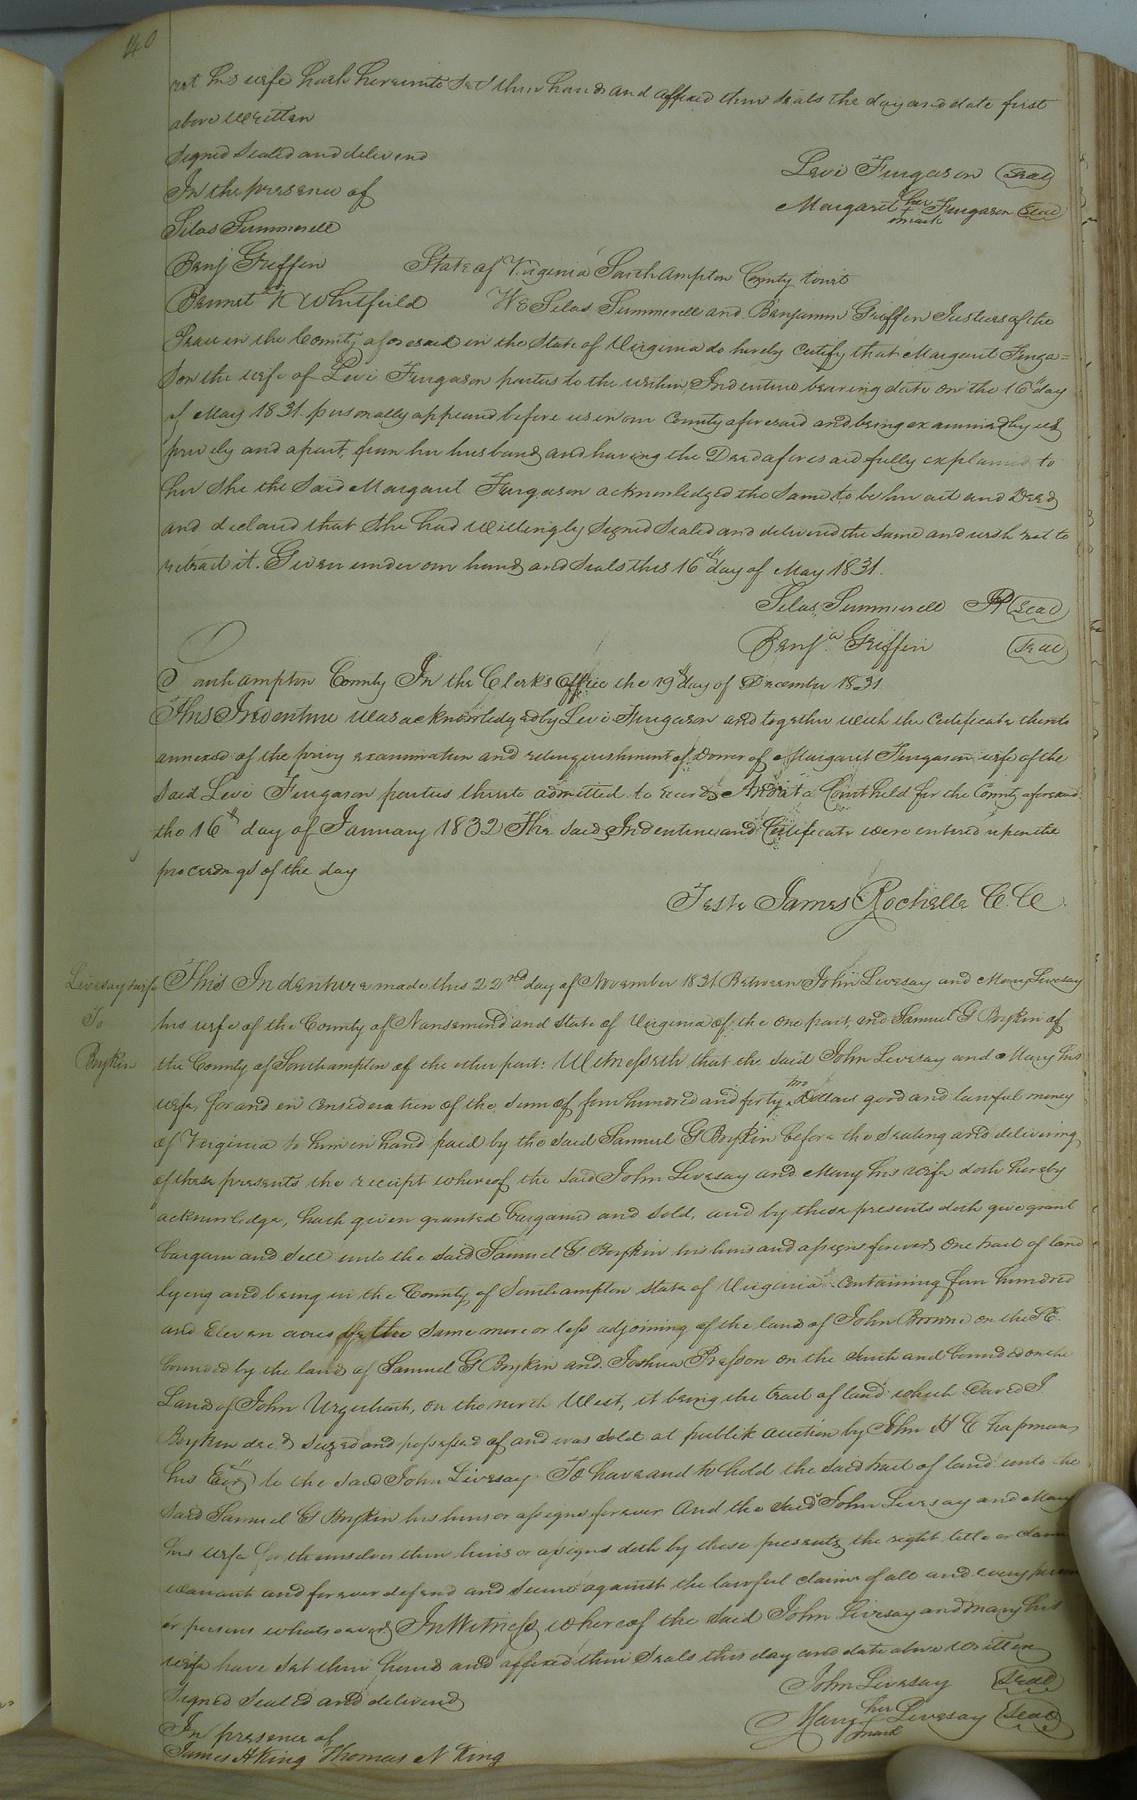 140
ret his wife hath hereunto set their hands and affixed their seals the day and date first
above written
Signed Sealed and deliverd
In the presence of
Levi Furgason (Seal)
Margaret her + mark Furgason (Seal)
Silas Summerell
Benj Griffin
State of Virginia Southampton County Court
Bennet W Whitfield
We Silas Summerell and Benjamin Griffin Justices of the
Peace in the County aforesaid in the State of Virginia do hereby certify that Margaret Furga=
son the wife of Levi Furgason parties to the within Indenture bearing date on the 16th day
of May 1831 personally appeared before us in our County aforesaid and being examined by us
privily and apart from her husband and having the Deed aforesaid fully explained to
her She the Said Margaret Furgason acknowledged the Same to be her act and Deed
and declared that She had willingly Signed Sealed and delivered the same and wish not to
retract it. Given under our hands and Seals this 16th day of May 1831.
Silas Summerell (Seal)
Benja Griffin (Seal)
Southampton County In the Clerks Office the 19th day of December 1831
This Indenture was acknowledged by Levi Furgason and together with the Certificate thereto
annexed of the privy examination and relinquishment of Dower of Margaret Furgason wife of the
Said Levi Furgason parties thereto admitted to record And at a Court held for the County aforesaid
the 16th day of January 1832 The Said Indenture and Certificate were entered upon the
proceedings of the day
Teste James Rochelle C.C.
Livesay & wife
To
Boykin
This Indenture made this 22nd day of November 1831 Between John Livesay and Mary Livesay
his wife of the County of Nansemond and State of Virginia of the one part, and Samuel G Boykin of
the County of Southampton of the other part: Witnesseth that the Said John Livesay and Mary his
wife, for and in Consideration of the Sum of four hundred and forty two Dollars good and lawful money
of Virginia to him in hand paid by the Said Samuel G Boykin before the Sealing and delivering
of these presents the receipt whereof the Said John Livesay and Mary his wife doth hereby
acknowledge, hath given granted bargained and Sold, and by these presents doth give grant
bargain and Sell unto the Said Samuel G Boykin his heirs and assigns forever One tract of land
lying and being in the County of Southampton State of Virginia Containing four hundred
and Eleven acres be the Same more or less adjoining of the land of John Browne on the SE.
bounded by the land of Samuel G Boykin and Joshua Presson on the South and bounded on the
Land of John Urquhart, on the north West, it being the tract of land which David J
Boykin decd Siezed and possessed of and was Sold at publik auction by John H C hapman
his Exr to the Said John Livesay To have and to hold the Said tract of land unto the
Said Samuel G Boykin his heirs or assigns forever And the Said John Livesay and Mary
his wife for themselves their heirs or assigns doth by these presents the right title or claim
warrant and forever defend and Secure against the lawful claims of all and every person
or persons whatsoever In Witness whereof the Said John Livesay and Mary his
wife have Set their hand and affixed their Seals this day and date above written
Signed Sealed and delivered
John Livesay (Seal)
In presence of
Mary her mark Livesay (Seal)
James H King Thomas N King